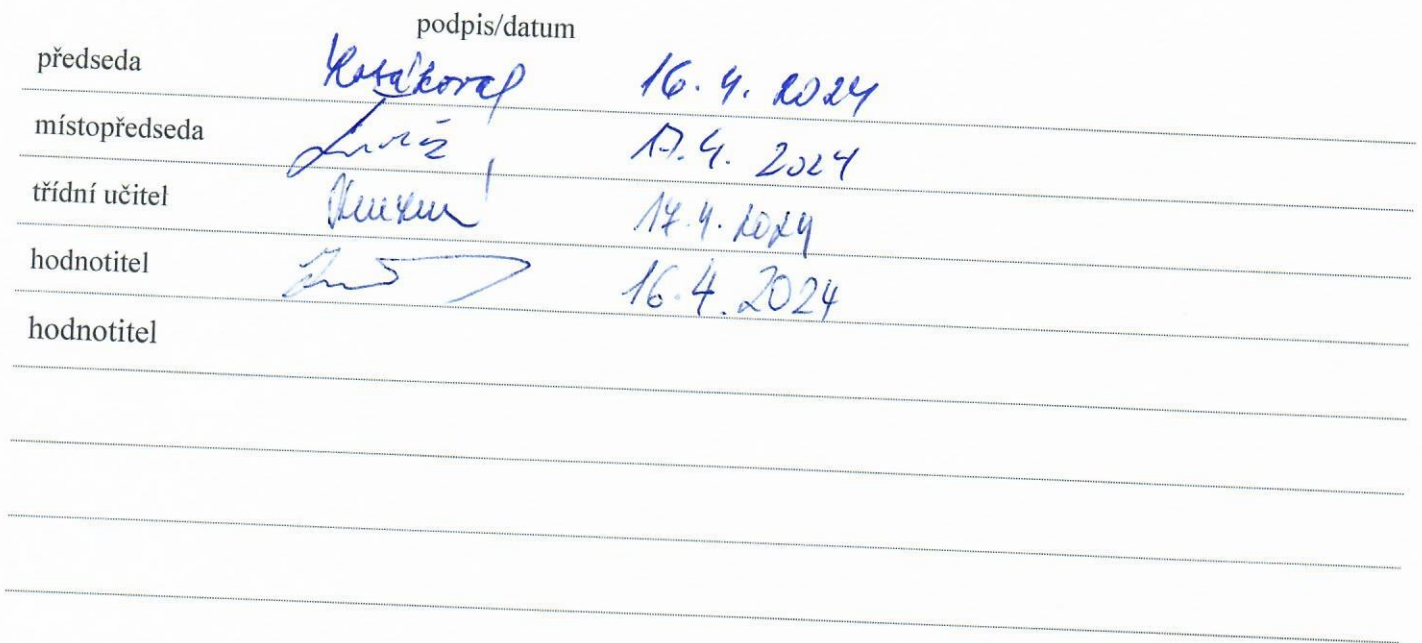 podpis/datum
předseda 16. 4. 2024
místopředseda 17. 4. 2024
třídní učitel 17. 4. 2024
hodnotitel 16. 4. 2024
hodnotitel